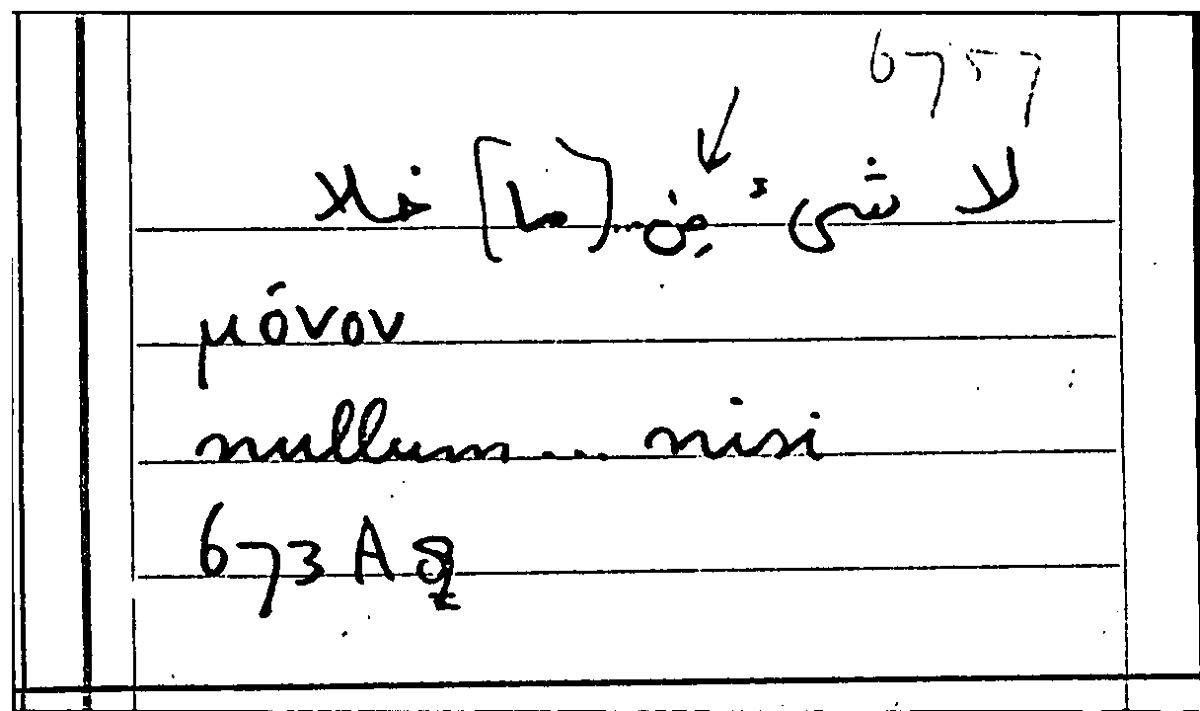 6757
لا شىء من...[ما] خلا
μόνον
nullum... nisi
673 A 8